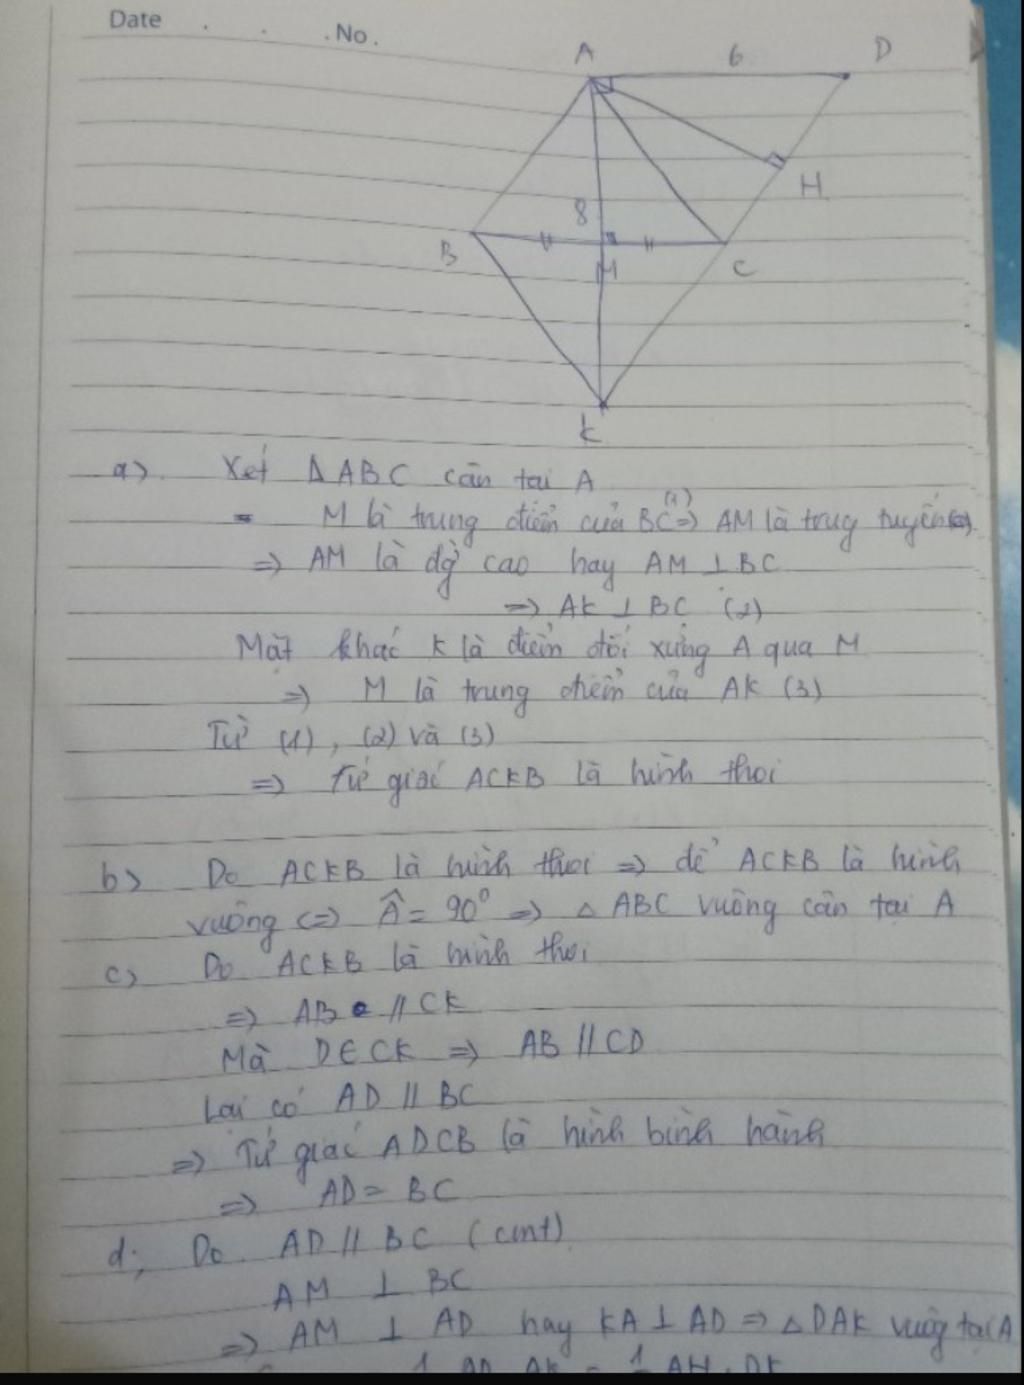 Date . . . No.
A 6 D
H
8
B M C
K
a) Xét Δ ABC cân tại A
- M là trung điểm của BC (1) => AM là trug tuyến
=> AM là đg cao hay AM ⊥ BC
=> AK ⊥ BC (2)
Mặt khác K là điểm đối xứng A qua M
=> M là trung điểm của AK (3)
Từ (1), (2) và (3)
=> Tứ giác ACKB là hình thoi
b) Do ACKB là hình thoi => để ACKB là hình
vuông <=> Â = 90° => Δ ABC vuông cân tại A
c) Do ACKB là hình thoi
=> AB // CK
Mà D ∈ CK => AB // CD
Lại có AD // BC
=> Tứ giác ADCB là hình bình hành
=> AD = BC
d; Do AD // BC (cmt)
AM ⊥ BC
=> AM ⊥ AD hay KA ⊥ AD => Δ DAK vuôg tại A
1 AD. AK = 1 AH. DK